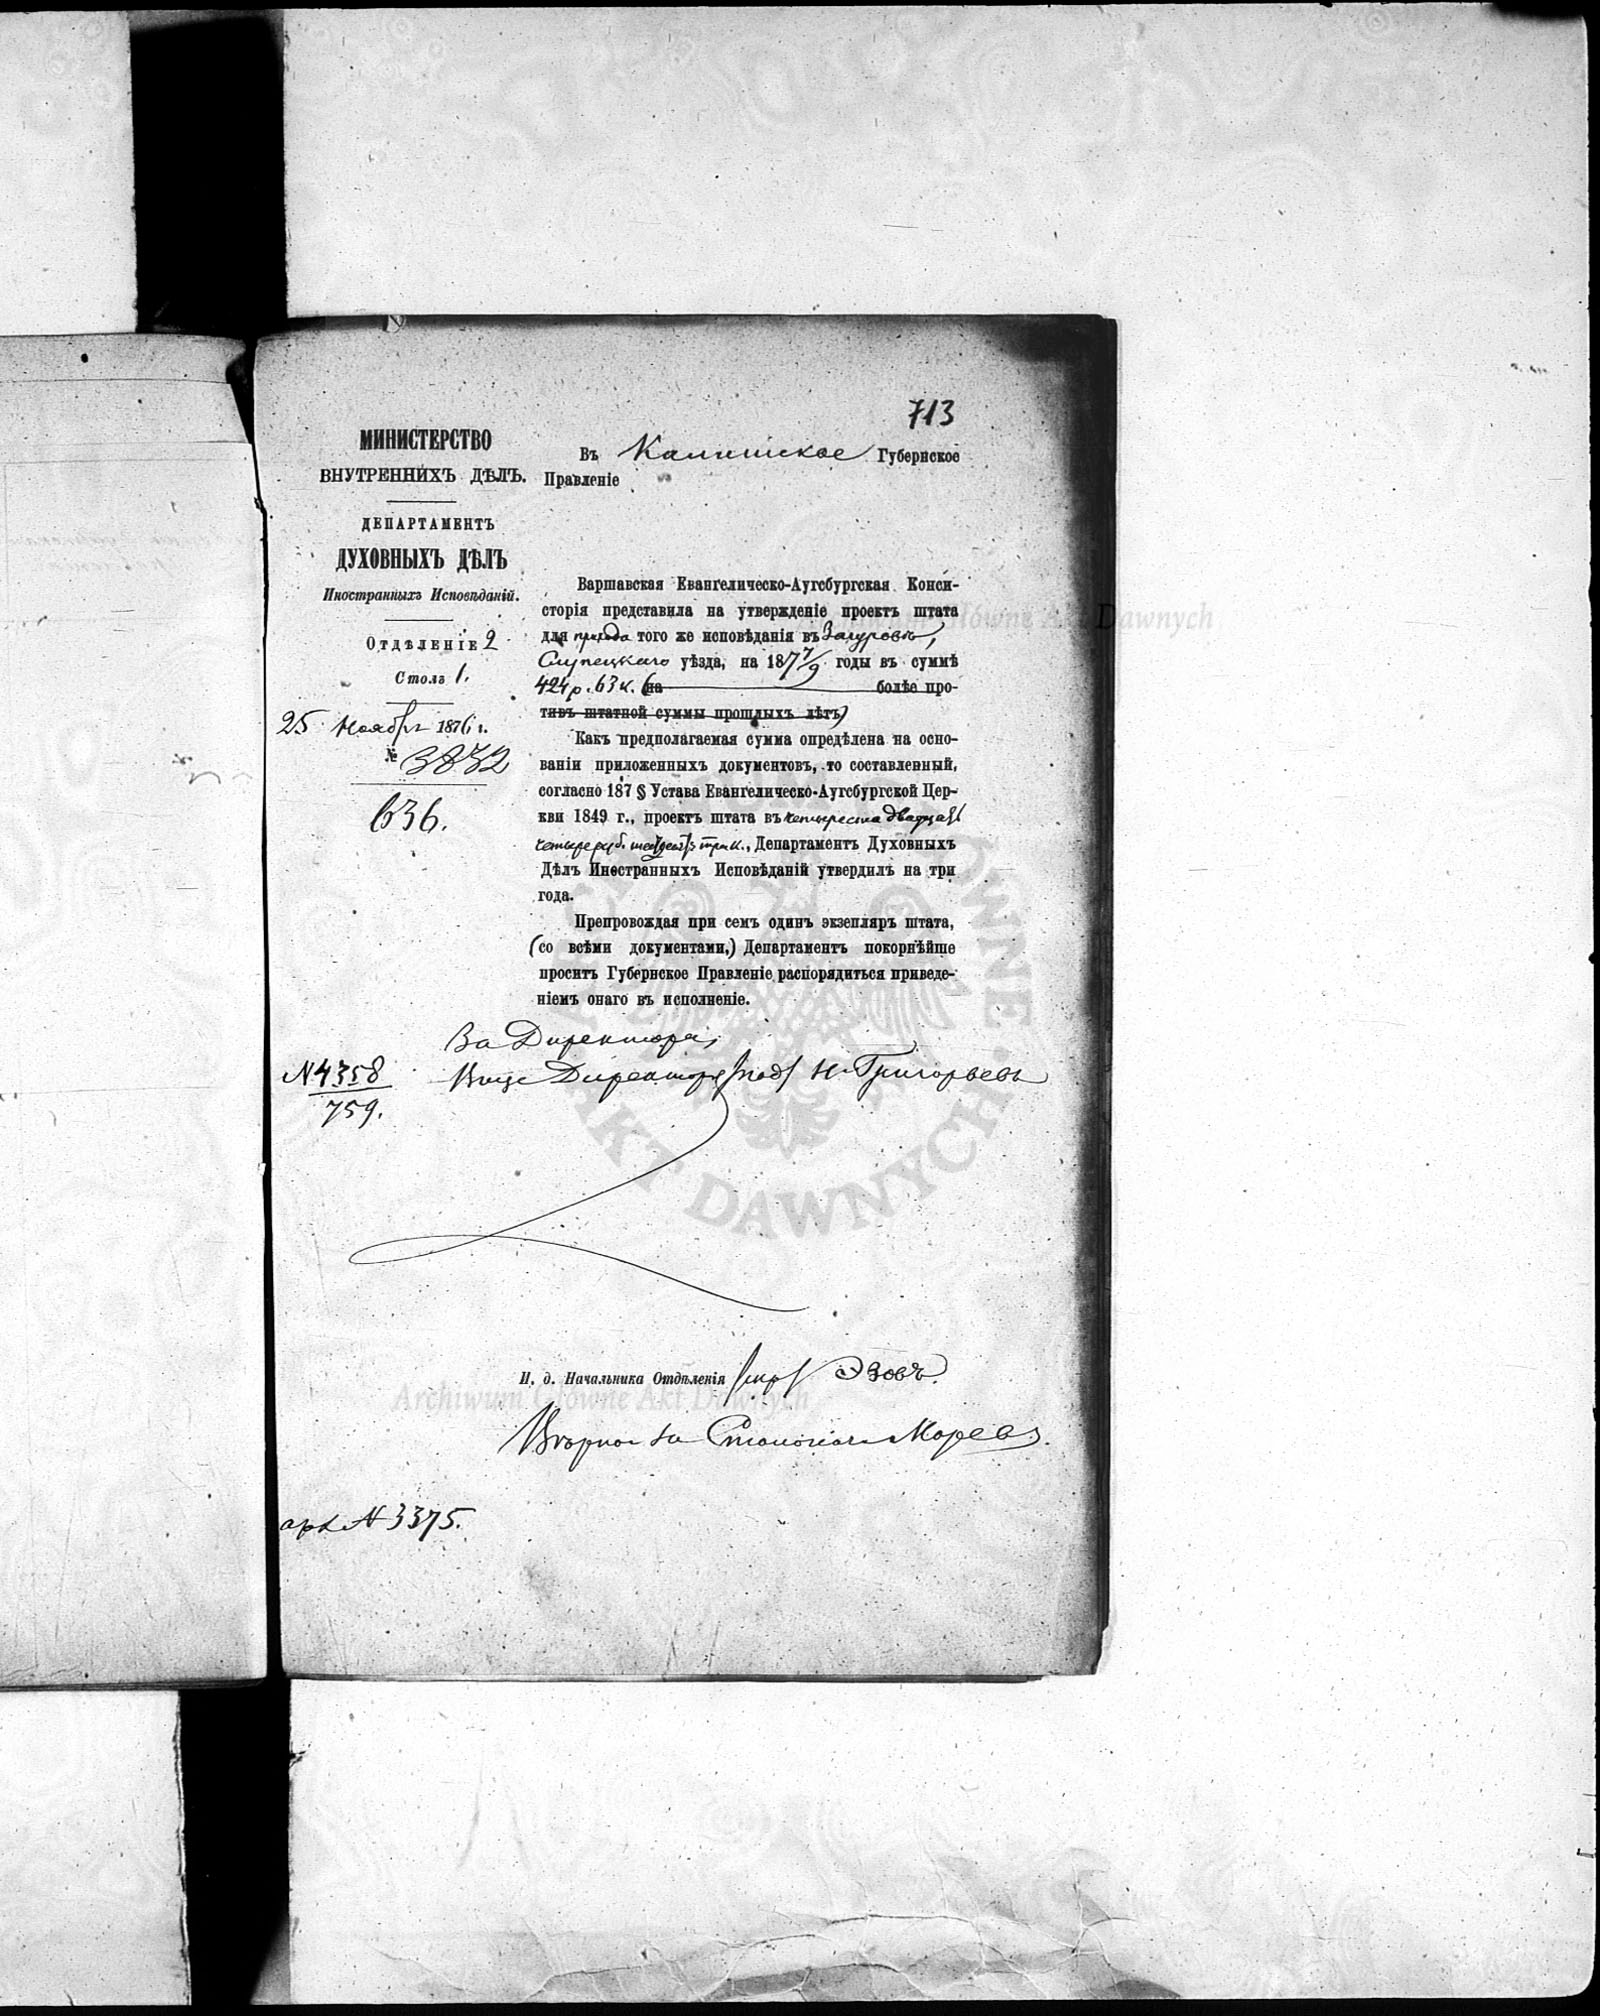 713
МИНИСТЕРСТВО
ВНУТРЕННИХЪ ДѢЛЪ.
ДЕПАРТАМЕНТЪ
ДУХОВНЫХЪ ДѢЛЪ
Иностранныхъ Исповѣданій.
Отдѣленіе 2
Столъ 1.
25 Ноября 1876 г.
№ 3832
636.
Въ Калишское Губернское
Правленіе
Варшавская Евангелическо-Аугсбургская Конси-
сторія представила на утвержденіе проектъ штата
для прихода того же исповѣданія въ Загуровѣ,
Слупецкаго уѣзда, на 187 7/9 годы въ суммѣ
424 р. 63 к. (на болѣе про-
тивъ штатной суммы прошлыхъ лѣтъ)
Какъ предполагаемая сумма опредѣлена на осно-
ваніи приложенныхъ документовъ, то составленный,
согласно 187 § Устава Евангелическо-Аугсбургской Цер-
кви 1849 г., проектъ штата въ четыреста двадцать
четыре руб. шестьдесятъ три к., Департаментъ Духовныхъ
Дѣлъ Иностранныхъ Исповѣданій утвердилъ на три
года.
Препровождая при семъ одинъ экземпляръ штата,
(со всѣми документами,) Департаментъ покорнѣйше
проситъ Губернское Правленіе распорядиться приведе-
ніемъ онаго въ исполненіе.
За Директора,
Вице Директоръ /под/ Н. Григорьевъ
N 4358
759.
И. д. Начальника Отдѣленія /скр/ Эзовъ.
Вѣрно: за Столоначальника Моревъ.
арх N 3375.
Archiwum Główne Akt Dawnych
Archiwum Główne Akt Dawnych
ARCHIWUM GŁÓWNE AKT DAWNYCH